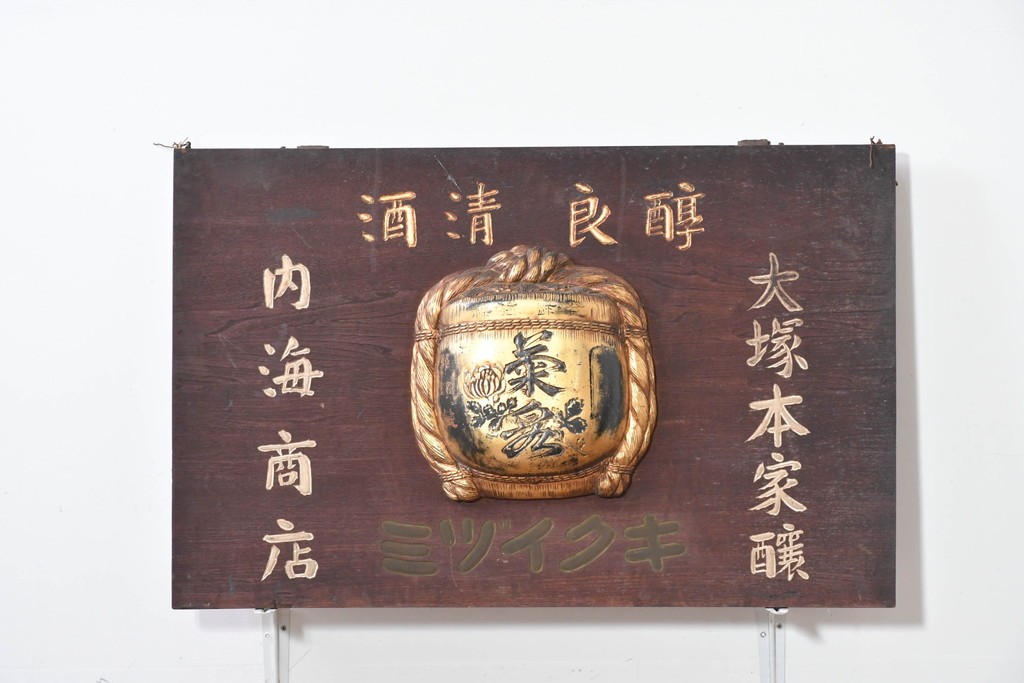 醇良 清酒
大塚本家釀
菊泉
キクイヅミ
内海商店